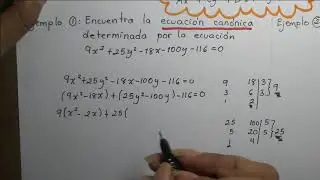 Ejemplo ①: Encuentra la ecuación canónica
determinada por la ecuación
9x² + 25y² - 18x - 100y - 116 = 0
9x² + 25y² - 18x - 100y - 116 = 0
(9x² - 18x) + (25y² - 100y) - 116 = 0
9(x² - 2x) + 25(
9 18 3
3 6 3 9
1 2
25 100 5
5 20 5 25
1 4
Ejemplo ②